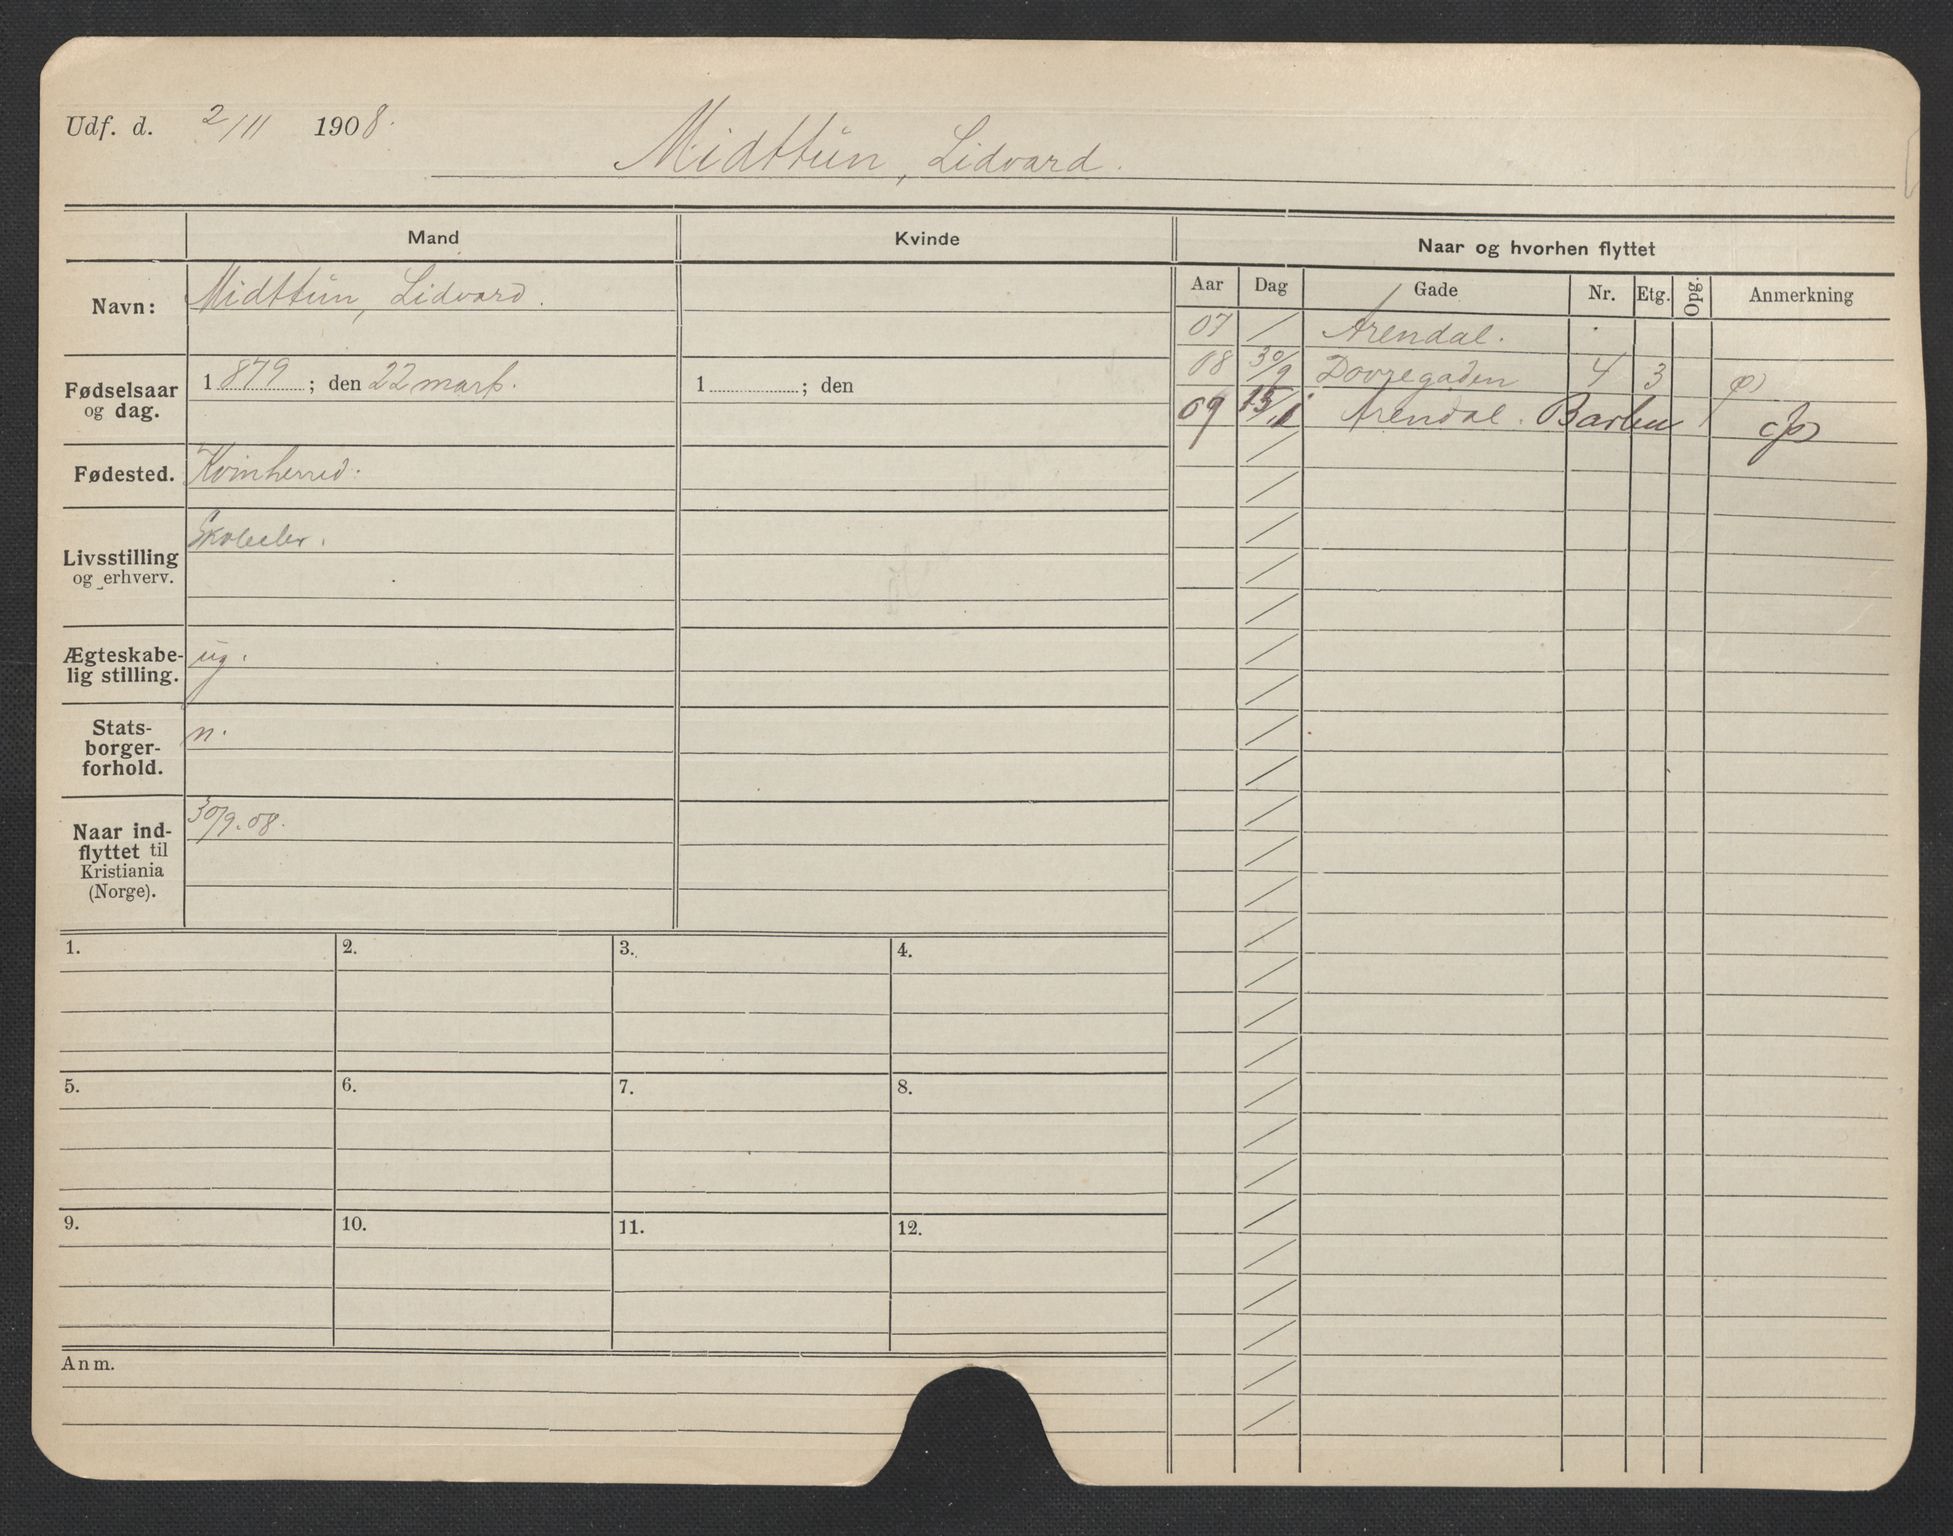 Udf. d. 2/11 1908.
Midttun, Lidvard.
Mand
Kvinde
Naar og hvorhen flyttet
Aar Dag Gade Nr. Etg. Opg. Anmerkning
Navn: Midttun, Lidvard.
Fødselsaar og dag. 1879; den 22 mars.
1 ; den
Fødested. Kvinherred.
Livsstilling
og erhverv.
Ægteskabe-
lig stilling. ug.
Stats-
borger-
forhold. n.
Naar ind-
flyttet til
Kristiania
(Norge). 30/9.08.
07 / Arendal.
08 30/9 Dovregaden 4 3
09 15/1 Arendal. Barbu
1. 2. 3. 4.
5. 6. 7. 8.
9. 10. 11. 12.
Anm.